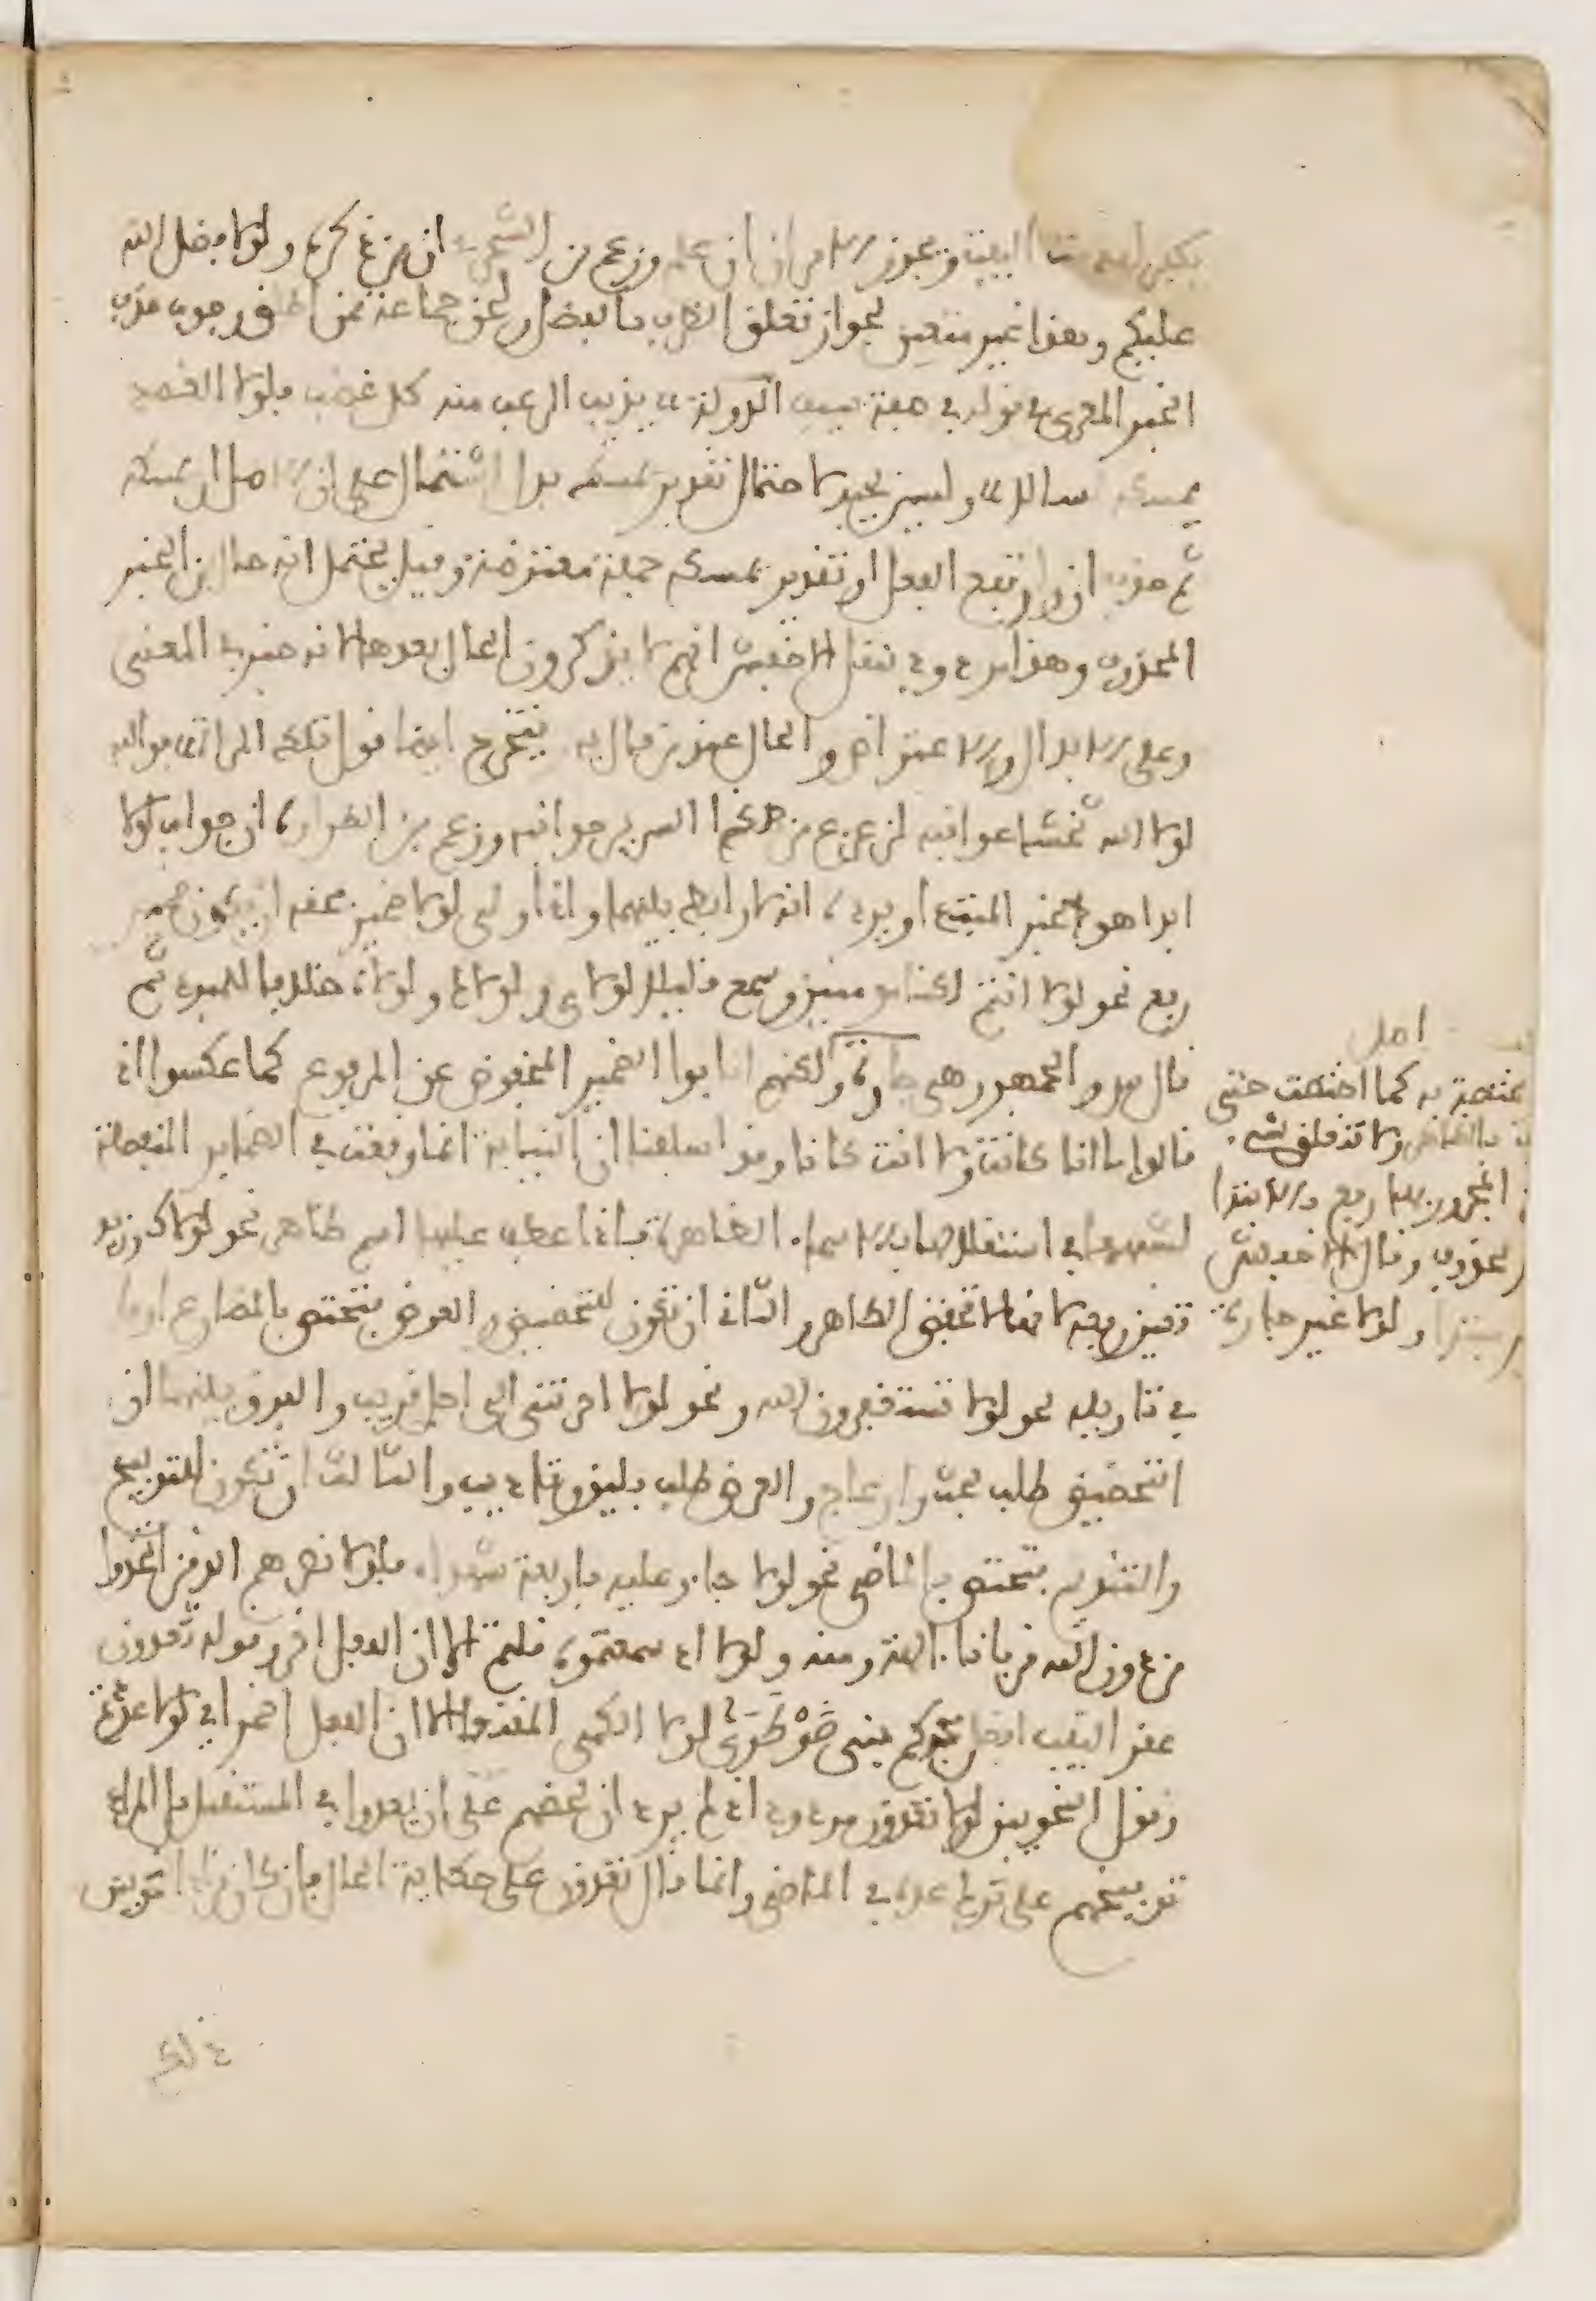 البيت ويجوز وزعم بن الشجري ان من ذكره ولولا فضل الله
عليكم وهذا غير متعين لجواز تعلق الظرف بالفضل ولحن جماعة ممن اطلق وجوب حذف
الخبر المعري في قوله في صفة سيف الدولة يذيب الرعب منه كل غضب فلولا الغمد
يمسكه لسالا وليس بجيد لاحتمال تقدير يمسكه بدل اشتمال على ان الاصل ان يمسكه
ثم حذف ان وارتفع الفعل او تقدير يمسكه جملة معترضة وقيل يحتمل انه حال من الخبر
المحذوف وهذا مردود بنقل الاخفش انهم لا يذكرون الحال بعدها لانه خبر في المعنى
وعلى الابدال والاعتراض والحال عند من قال به يتخرج ايضا قول تلك المراة فوالله
لولا الله تخشا عواقبه لزعزع من هذا السرير جوانبه وزعم بن الطراوة ان جواب لولا
ابدا هو خبر المبتدا ويرده انه لا رابط بينهما واذا ولي لولا ضمير فحقه ان يكون ضمير
رفع نحو لولا انتم لكنا مومنين وسمع قليلا لولاي ولولاك ولولاه خلافا للمبرد ثم
قال س والجمهور هي جارة ولكنهم انابوا الضمير المخفوض عن المرفوع كما عكسوا اذ
قالوا ما انا كانت ولا انت كانا وقد اسلفنا ان النيابة انما وقعت في الضماير المنفصلة
لشبهها في استقلالها بالاسماء الظاهرة فاذا عطف عليها اسم ظاهر نحو لولاك وزيد
تعين رفعه لانها لا تخفض الظاهر الثاني ان تكون للتحضيض والعرض فتختص بالمضارع او ما
في تاويله نحو لولا تستغفرون الله ونحو لولا اخرتني الى اجل قريب والفرق بينهما ان
التحضيض طلب بحث وازعاج والعرض طلب بلين وتاديب والثالث ان تكون للتوبيخ
والتنديم فتختص بالماضي نحو لولا جاءو عليه باربعة شهداء فلولا نصرهم الذين اتخذوا
من دون الله قربانا الهة ومنه ولولا اذ سمعتموه قلتم الا ان الفعل اخر وقوله تعدون
عقر النيب افضل مجدكم بني ضوطرى لولا الكمي المقنعا الا ان الفعل اضمر اي لولا عددتم
وقول النحويين لولا تعدون مردود اذ لم يرد ان يحضهم على ان يعدوا في المستقبل بل المراد
توبيخهم على ترك عده في الماضي وانما قال تعدون على حكاية الحال فان كان مراد النحويين
اصل
مختصة به كما اختصت حتى
بالظاهر ولا تتعلق بشيء
المجرور بها رفع بالابتدا
محذوف وقال الاخفش
مبتدا ولولا غير جارة